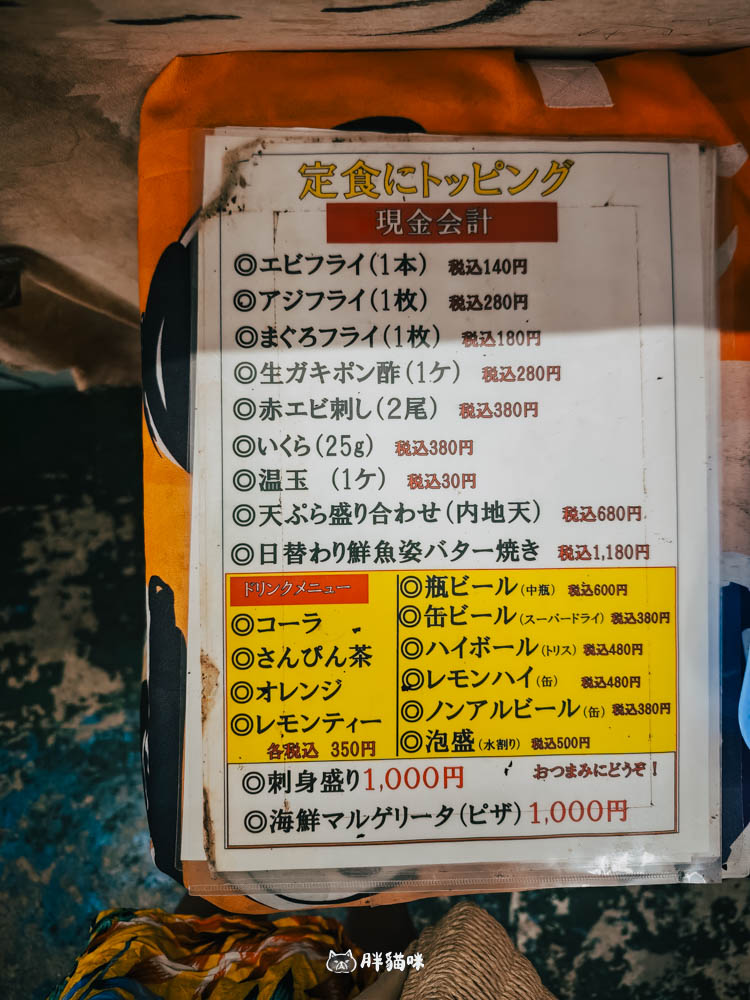 定食にトッピング
現金会計
◎エビフライ(1本) 税込140円
◎アジフライ(1枚) 税込280円
◎まぐろフライ(1枚) 税込180円
◎生ガキポン酢(1ケ) 税込280円
◎赤エビ刺し(2尾) 税込380円
◎いくら(25g) 税込380円
◎温玉 (1ケ) 税込30円
◎天ぷら盛り合わせ(内地天) 税込680円
◎日替わり鮮魚姿バター焼き 税込1,180円
ドリンクメニュー
◎コーラ
◎さんぴん茶
◎オレンジ
◎レモンティー
各税込 350円
◎瓶ビール(中瓶) 税込600円
◎缶ビール(スーパードライ) 税込380円
◎ハイボール(トリス) 税込480円
◎レモンハイ(缶) 税込480円
◎ノンアルビール(缶) 税込380円
◎泡盛(水割り) 税込500円
◎刺身盛り1,000円 おつまみにどうぞ!
◎海鮮マルゲリータ(ピザ)1,000円
胖貓咪